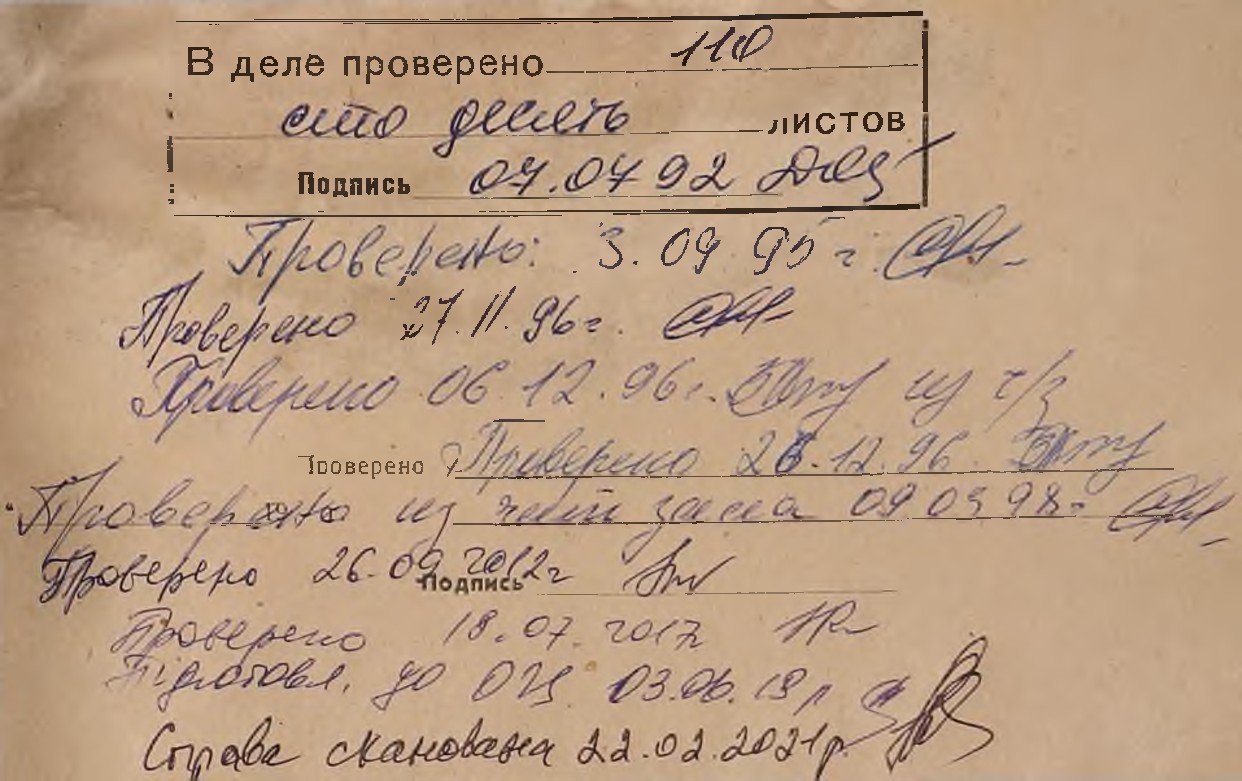 В деле проверено 110
сто десять листов
Подпись 07.07 92
Проверено: 3.09.95 г.
Проверено 27.11.96г.
Проверено 06.12.96г. из ч/з
Проверено Проверено 26.12.96
Проверено из чит зала 09 03 98г
Проверено 26.09.2012г
Подпись
Проверено 18.07.2017
Підготовл. до ОЦ 03.06.19р
Справа сканована 22.02.2021р.